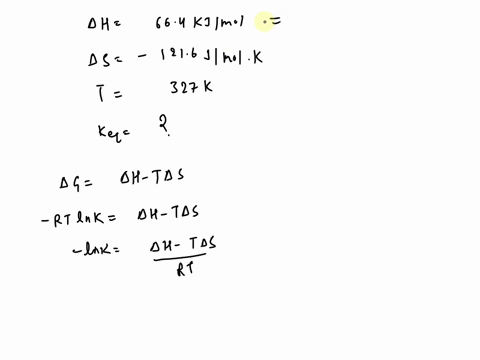 ΔH= 66.4 KJ/mol =
ΔS= - 121.6 J/mol.K
T= 327 K
Keq= ?
ΔG= ΔH-TΔS
-RT lnK= ΔH-TΔS
-lnK= ΔH- TΔS
RT